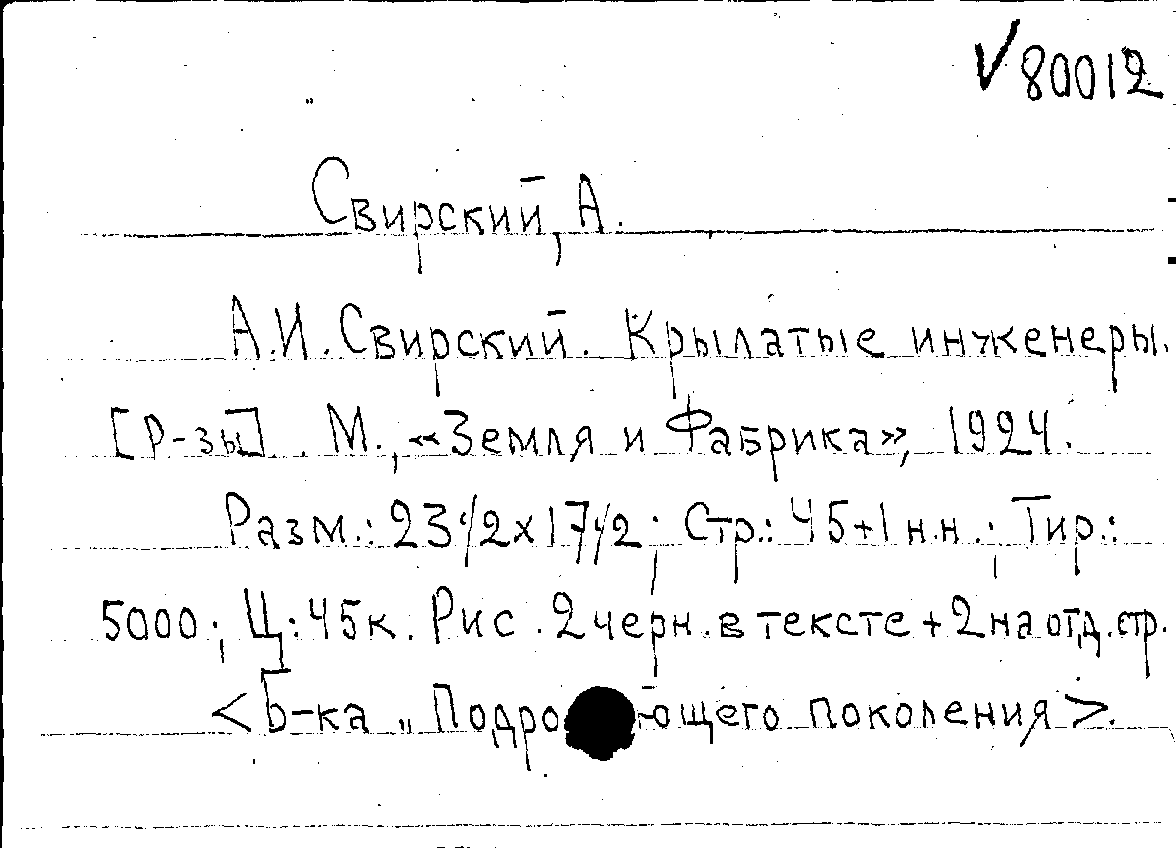 V 80012
Свирский, А.
А.И. Свирский. Крылатые инженеры.
[Р-зы]. М., «Земля и Фабрика», 1924.
Разм.: 23 1/2 x 17 1/2; Стр.: 45+1 н.н.; Тир.:
5000; Ц: 45 к. Рис. 2 черн. в тексте + 2 на отд. стр.
<Б-ка „ поколения>.